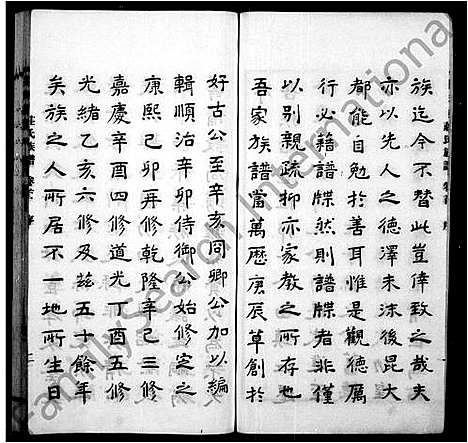 族迄今不替此豈倖致之哉夫
亦以先人之德澤未沫後昆大
都能自勉於善耳惟是觀德厲
行必藉譜牒然則譜牒者非僅
以別親疏抑亦家教之所存也
吾家族譜當萬歷庚辰草創於
好古公至辛亥同卿公加以編
輯順治辛卯侍御公始修定之
康熙己卯再修乾隆辛巳三修
嘉慶辛酉四修道光丁酉五修
光緒乙亥六修及茲五十餘年
矣族之人所居不一地所生日
莊氏族譜
FamilySearch International